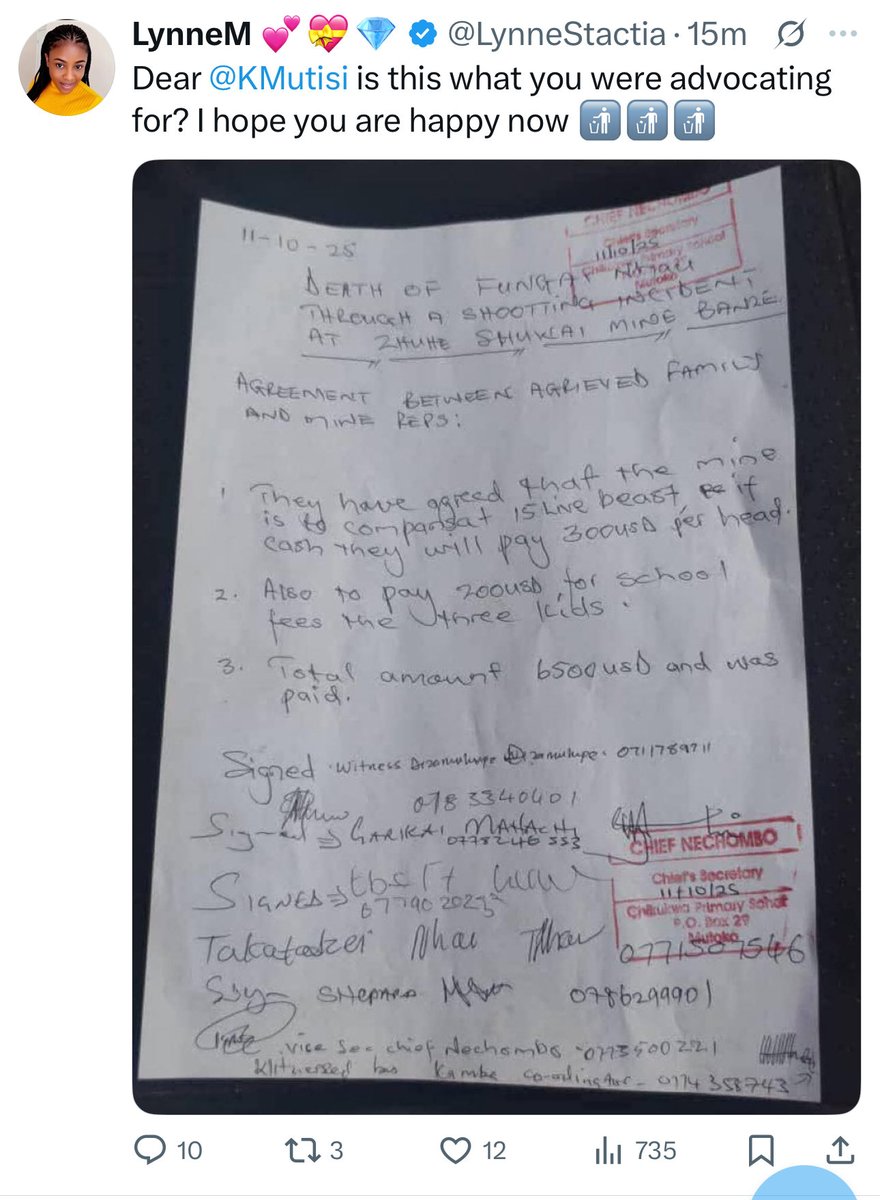 LynneM 💕💝💎 @LynneStactia · 15m
Dear @KMutisi is this what you were advocating
for? I hope you are happy now 🚮🚮🚮
11-10-25
CHIEF NECHOMBO
Chief's Secretary
11/10/25
Primary School
Mutoko
DEATH OF FUNGAI NHAU
THROUGH A SHOOTTING INCIDENT
AT ZHUHE SHUKAI MINE BANZE
AGREEMENT BETWEEN AGRIEVED FAMILY
AND MINE REPS:
1 They have agreed that the mine
is to compansat 15 live beast, if
cash they will pay 300usD per head.
2. Also to pay 200usD for school
fees the three kids.
3. Total amount 6500usD and was
paid.
Signed witness 0711789711
0783340401
Signed ⇒ GARIKAI MAHACHI
0773246553
CHIEF NECHOMBO
Chief's Secretary
11/10/25
Chikukwa Primary School
P.O. Box 29
Mutoko
SIGNED ⇒
Takatadzei Nhau
SHEPARD 0786299901
vice Sec chief Nechombo - 0773500221
Kambe co-odinator - 0774358743
10
3
12
735